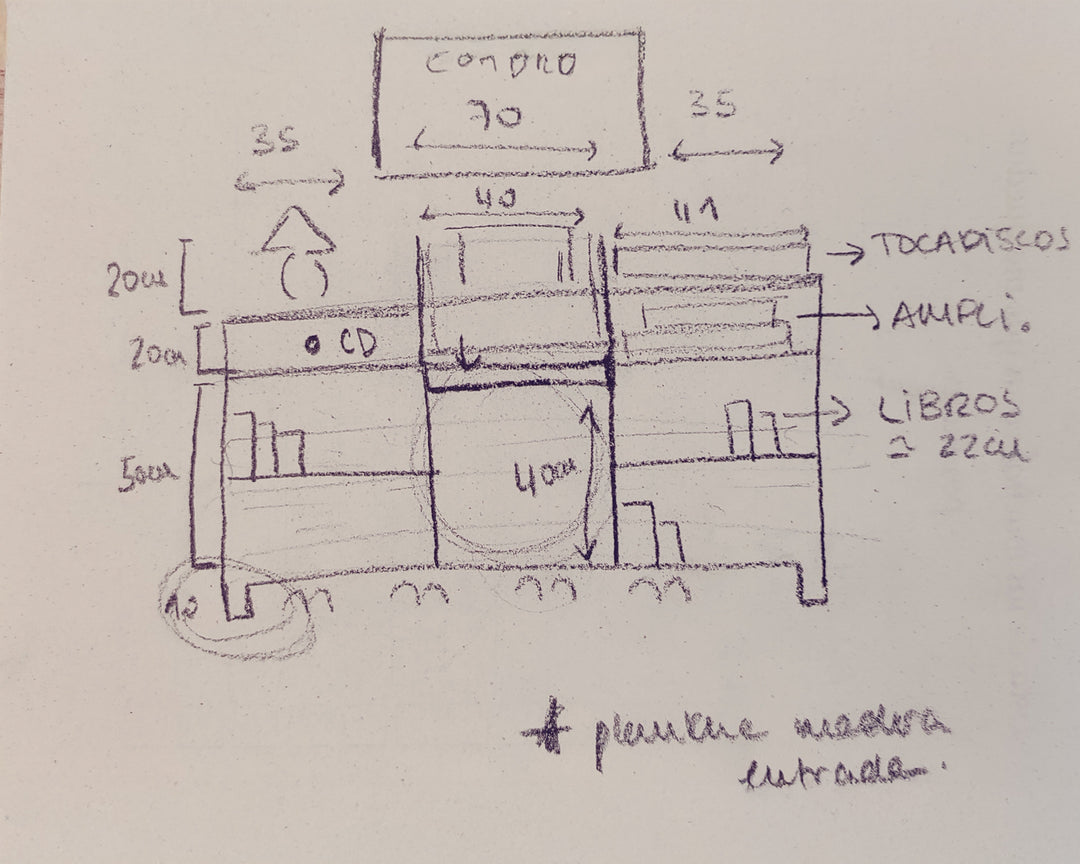 CUADRO
70
35
35
40
41
20cm
TOCADISCOS
20cm
CD
AMPLI.
LIBROS
≃ 22cm
50cm
40cm
10
madera
entrada.